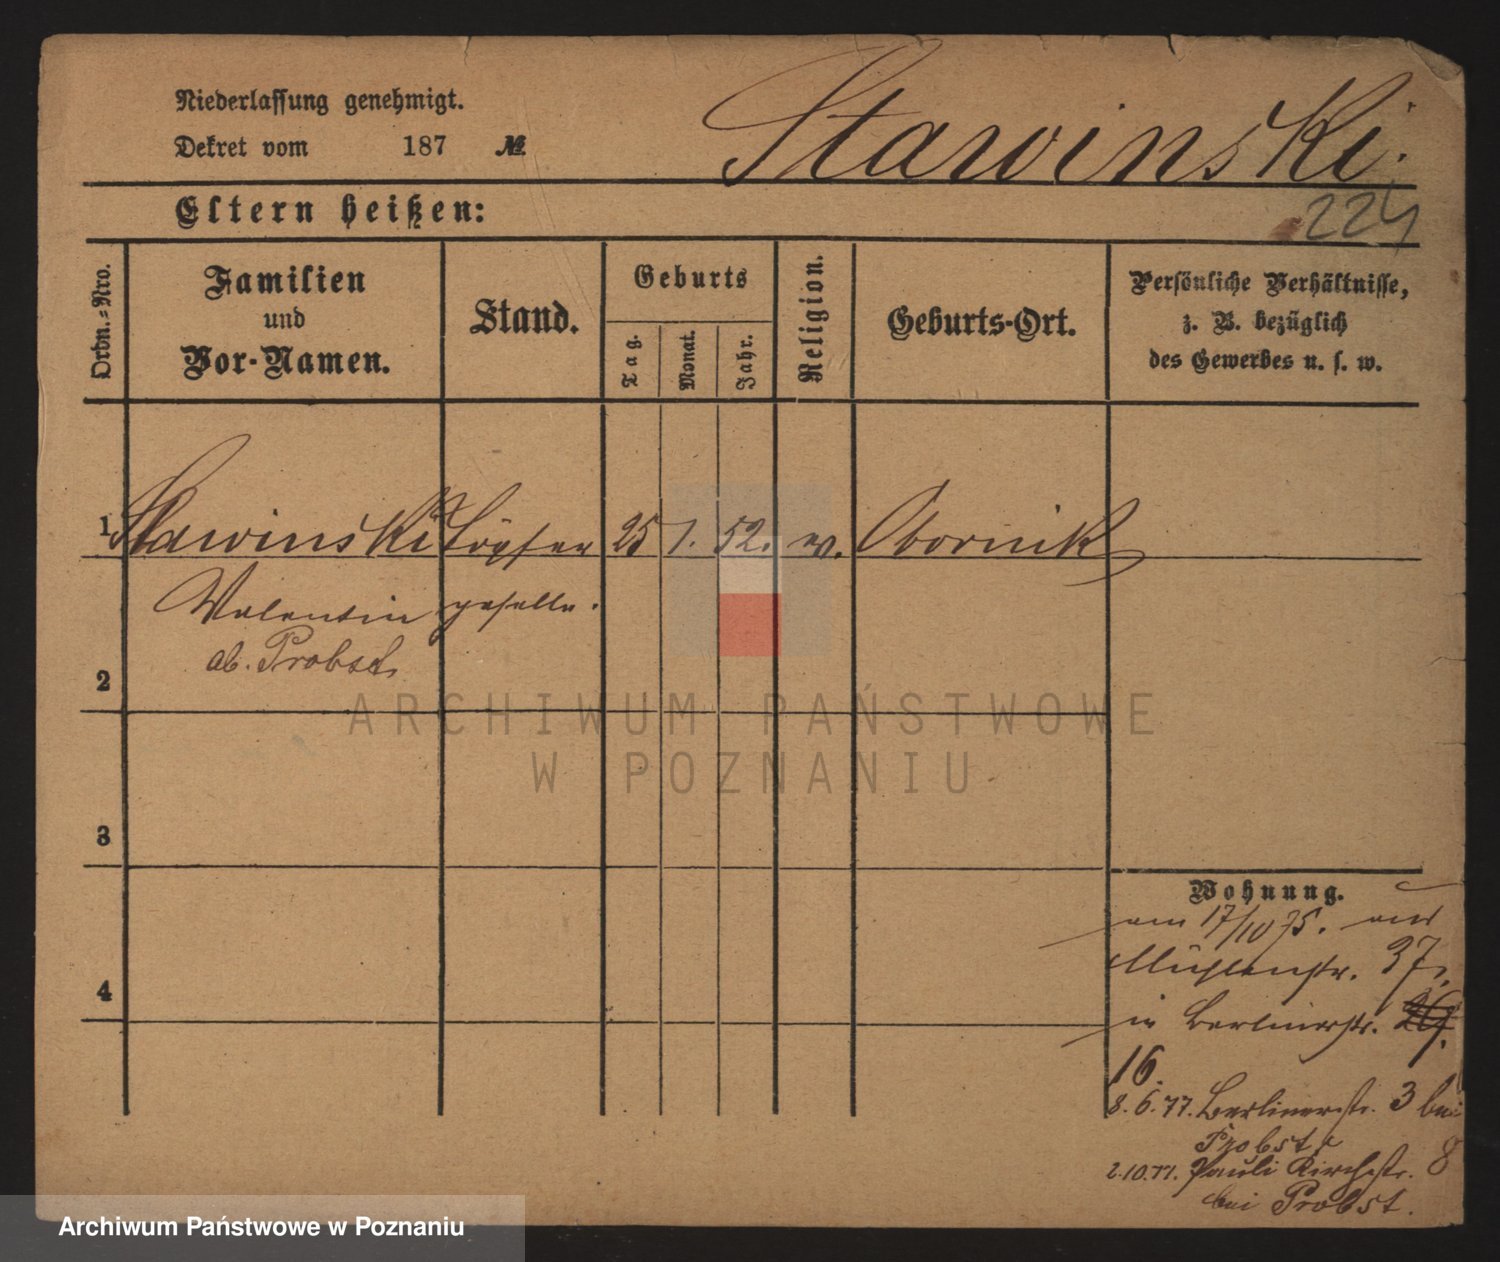 Niederlassung genehmigt.
Dekret vom 187 №
Stawinski.
Eltern heißen:
224
Ordn.-Nro.
Familien
und
Vor-Namen.
Stand.
Geburts
Tag.
Monat.
Jahr.
Religion.
Geburts-Ort.
Persönliche Verhältnisse,
z. B. bezüglich
des Gewerbes u. s. w.
1 Stawinski Töpfer 25 1. 52. Obornik
Valentin geselle.
ab. Probst
2
3
4
Wohnung.
am 17/10 75. aus
Mühlenstr. 37.
in Berlinerstr.
16.
8.6.77. Berlinerstr. 3 bei
Probst
2.10.77. Pauli Kirchstr. 8
bei Probst.
ARCHIWUM PAŃSTWOWE
W POZNANIU
Archiwum Państwowe w Poznaniu